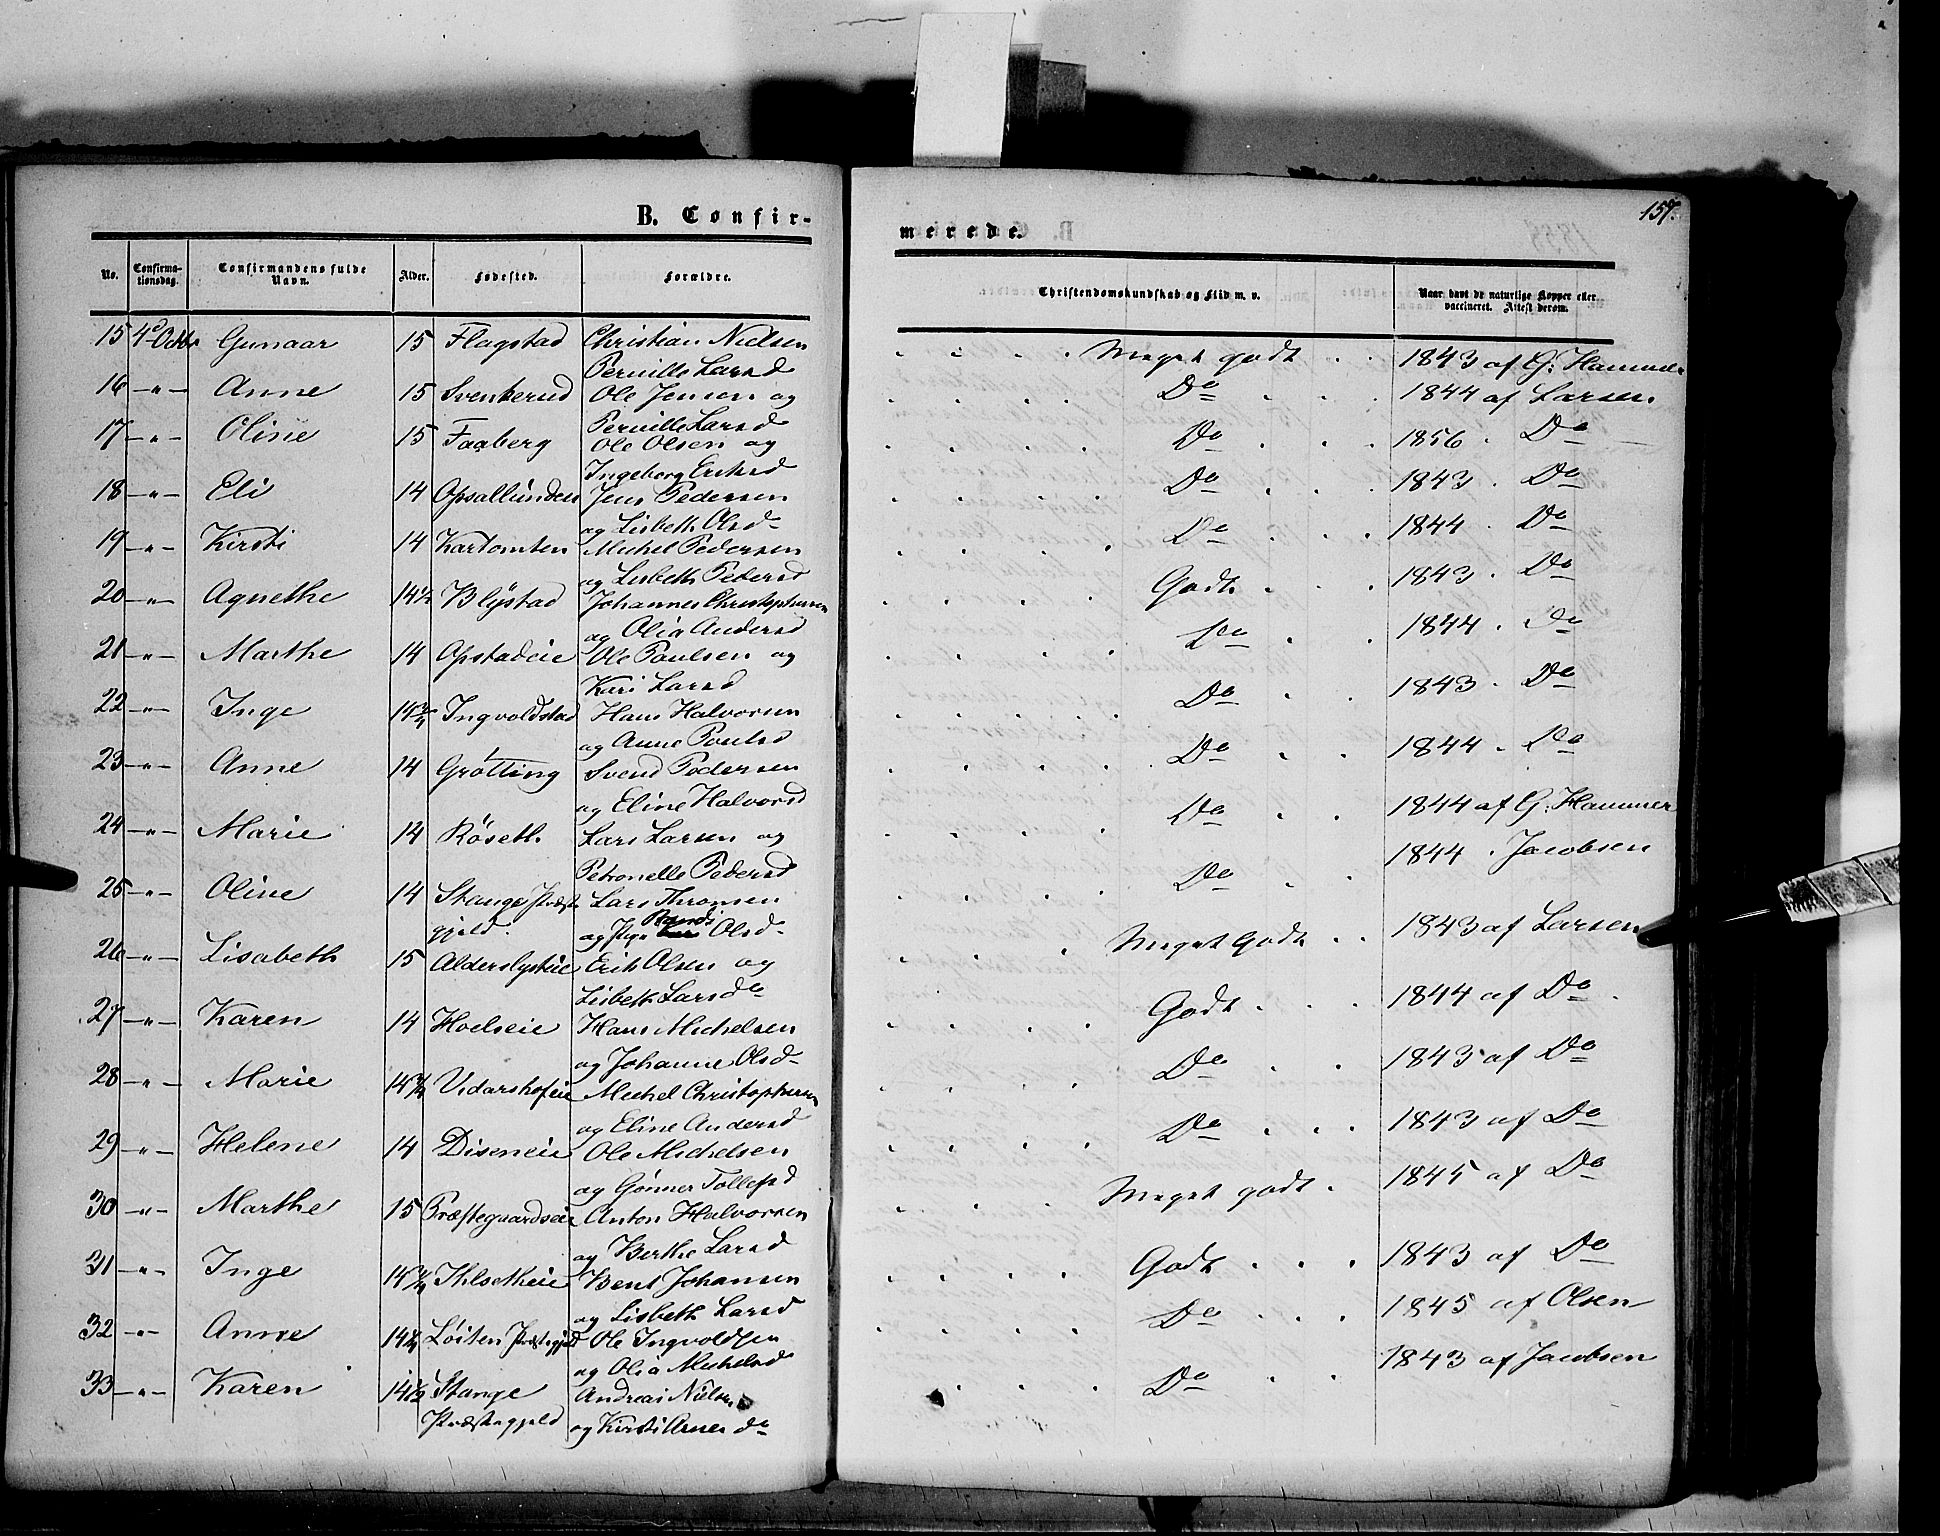 B. Confir-
No. Confirma-tionsdag. Confirmandens fulde Navn. Alder. Fødested. Forældre.
15 4de Octbr Gunnar 15 Flagstad Christian Nielsen
Pernille Larsd
16 -"- Anne 15 Svenkerud Ole Jensen og
Pernille Larsd
17 -"- Oline 15 Faaberg Ole Olsen og
Ingeborg Eriksd
18 -"- Eli 14 Opsallunden Jens Pedersen
og Lisbeth Olsd-
19 -"- Kirsti 14 Kartomten Michel Pedersen
og Lisbeth Pedersd
20 -"- Agnethe 14½ Blystad Johannes Christophersen
og Olia Andersd
21 -"- Marthe 14 Opstadeie Ole Paulsen og
Kari Larsd
22 -"- Inge 14¾ Ingvoldstad Hans Halvorsen
og Anne Poulsd
23 -"- Anne 14 Grøtting Svend Pedersen
og Eline Halvorsd
24 -"- Marie 14 Røseth Lars Larsen og
Petronelle Pedersd
25 -"- Oline 14 Stange Præste Lars Thronsen
gjeld. og Pige Randi Olsd-
26 -"- Lisabeth 15 Alderslysteie Erik Olsen og
Lisbeth Larsdr
27 -"- Karen 14 Hoelseie Hans Michelsen
og Johanne Olsd-
28 -"- Marie 14¾ Vidarshofeie Michel Christophersen
og Eline Andersd
29 -"- Helene 14 Diseneie Ole Michelsen
og Gønner Tollefsd
30 -"- Marthe 15 Præstegaardseie Anton Halvorsen
og Berthe Larsd
31 -"- Inge Ihlsetheie Bent Johansen
og Lisbeth Larsd
32 -"- Anne Løiten Præstegjeld Ole Ingvoldsen
og Olia Michelsd
33 -"- Karen 14½ Stange Andreas Nilsen
Præstegjeld og Kirsti Arnesdr
157.
merede.
Christendomskundskab og Flid m. v. Naar havt de naturlige Kopper eller vaccineret. Attest derom.
Meget godt 1843 af G. Hammer
Do 1844 af Larsen
Do 1856 . Do
Do 1843 . Do
Do 1844 . Do
Godt 1843 . Do
Do 1844 . Do
Do 1843 . Do
Do 1844 . Do
Do 1844 af G. Hammer
Do 1844 . Jacobsen
Meget Godt 1843 af Larsen
Godt 1844 af Do
Do 1843 af Do
Do 1843 af Do
Meget godt 1845 af Do
Godt 1843 af Do
Do 1845 af Olsen
Do 1843 af Jacobsen